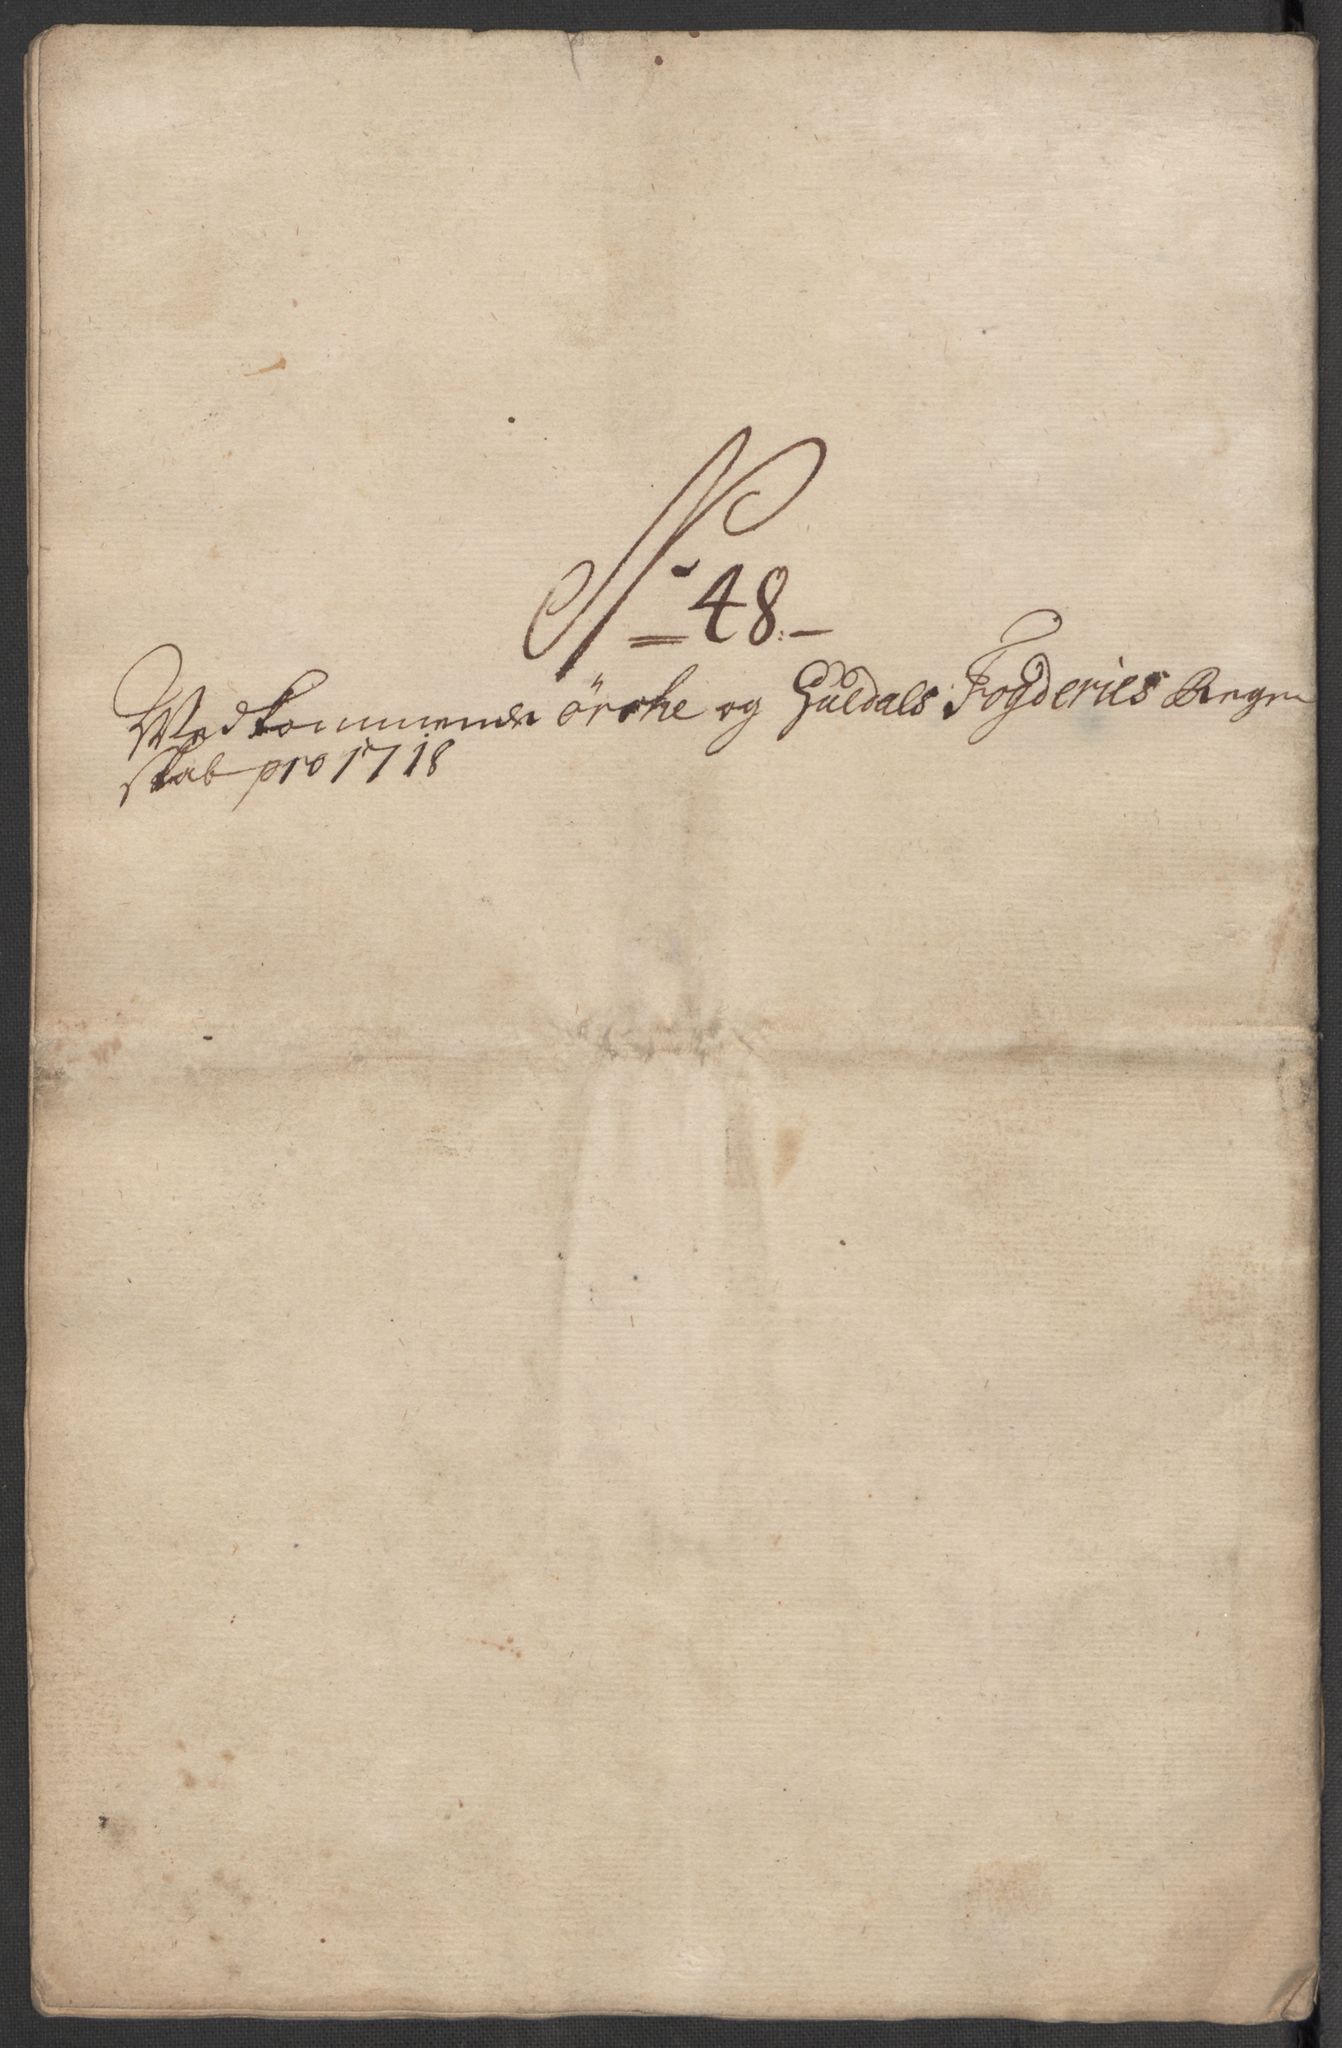 N 48.
Vedkommende örche og Guldals Fogderies Regn
skab pro 1718